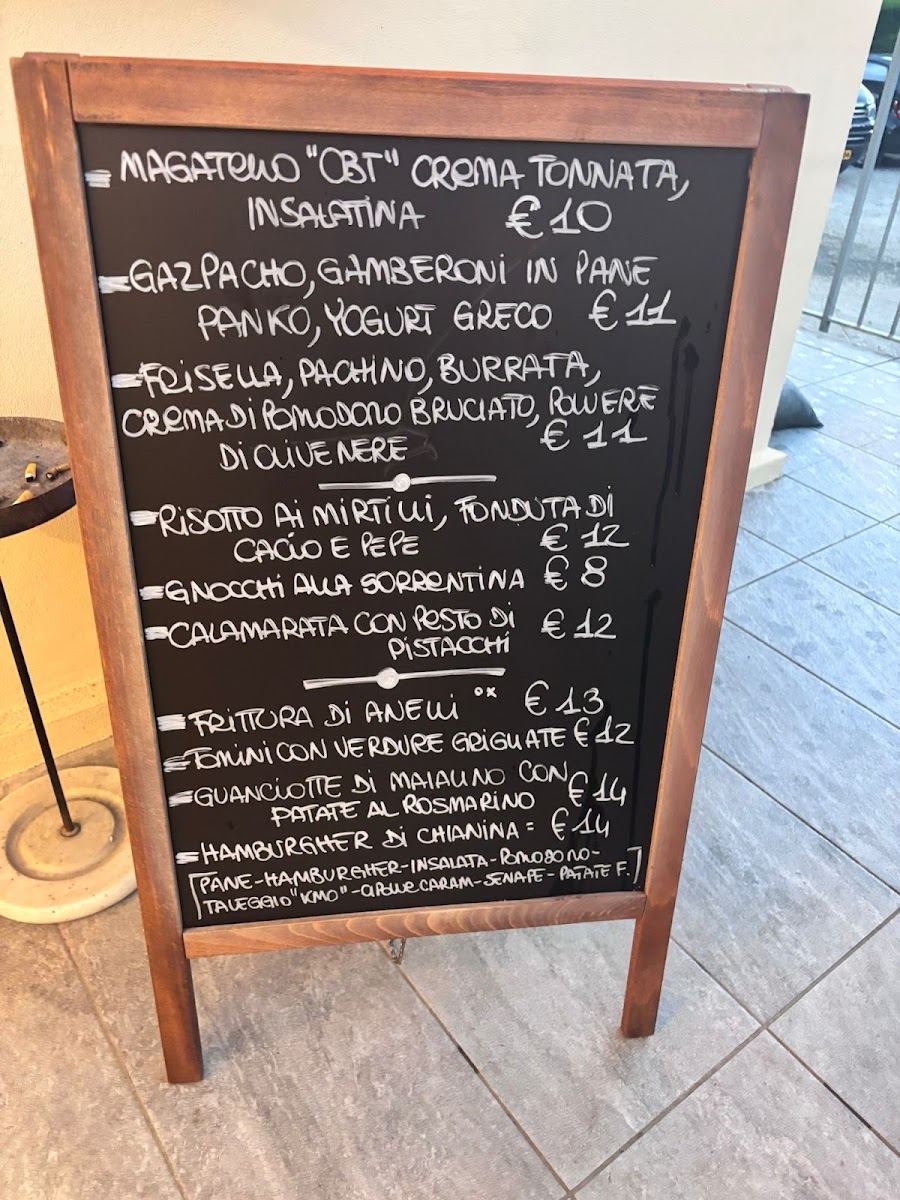 MAGATELLO "CBT" CREMA TONNATA,
INSALATINA € 10
GAZPACHO, GAMBERONI IN PANE
PANKO, YOGURT GRECO € 11
FRISELLA, PACHINO, BURRATA,
CREMA DI POMODORO BRUCIATO, POLVERE
DI OLIVE NERE € 11
RISOTTO AI MIRTILLI, FONDUTA DI
CACIO E PEPE € 12
GNOCCHI ALLA SORRENTINA € 8
CALAMARATA CON PESTO DI
PISTACCHI € 12
FRITTURA DI ANELLI °* € 13
TOMINI CON VERDURE GRIGLIATE € 12
GUANCIOTTE DI MAIALINO CON
PATATE AL ROSMARINO € 14
HAMBURGHER DI CHIANINA = € 14
[PANE-HAMBURGHER-INSALATA-POMODORO-
TALEGGIO "KM0"-CIPOLLE CARAM-SENAPE-PATATE F.]